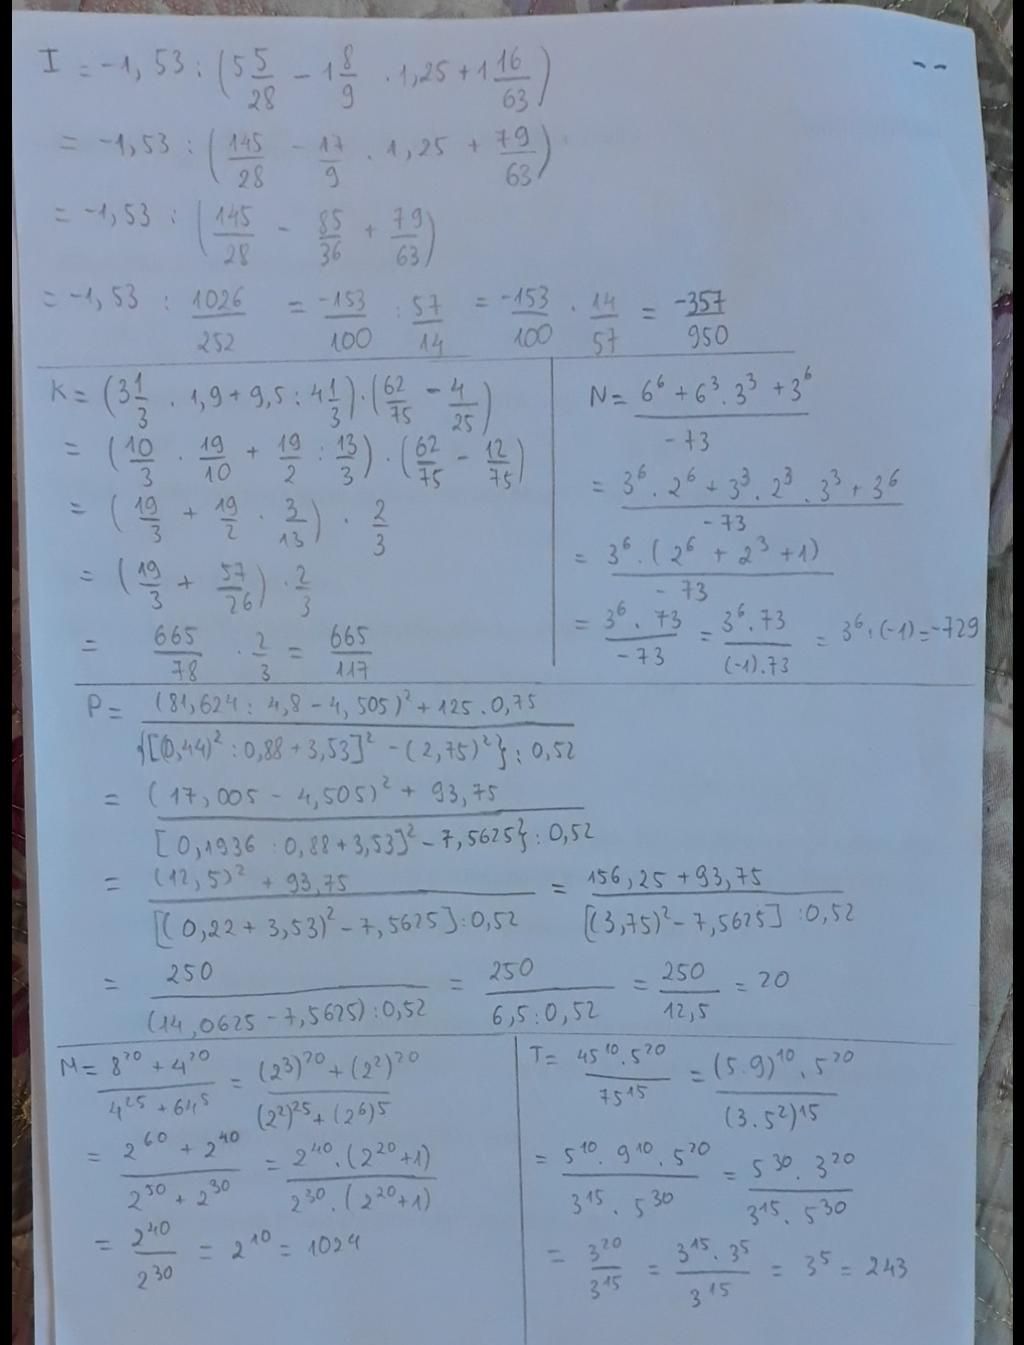 I = -1,53 : (5 5/28 - 1 8/9 . 1,25 + 1 16/63)
= -1,53 : (145/28 - 17/9 . 1,25 + 79/63)
= -1,53 : (145/28 - 85/36 + 79/63)
= -1,53 : 1026/252 = -153/100 : 57/14 = -153/100 . 14/57 = -357/950
K = (3 1/3 . 1,9 + 9,5 : 4 1/3) . (62/75 - 4/25)
= (10/3 . 19/10 + 19/2 : 13/3) . (62/75 - 12/75)
= (19/3 + 19/2 . 3/13) . 2/3
= (19/3 + 57/26) . 2/3
= 665/78 . 2/3 = 665/117
N = (6⁶ + 6³ . 3³ + 3⁶)/(-73)
= (3⁶ . 2⁶ + 3³ . 2³ . 3³ + 3⁶)/(-73)
= (3⁶ . (2⁶ + 2³ + 1))/(-73)
= (3⁶ . 73)/(-73) = (3⁶ . 73)/((-1) . 73) = 3⁶ . (-1) = -729
P = ((81,624 : 4,8 - 4,505)² + 125 . 0,75)/({[(0,44)² : 0,88 + 3,53]² - (2,75)²} : 0,52)
= ((17,005 - 4,505)² + 93,75)/([0,1936 : 0,88 + 3,53]² - 7,5625} : 0,52)
= ((12,5)² + 93,75)/([(0,22 + 3,53)² - 7,5625] : 0,52) = (156,25 + 93,75)/([(3,75)² - 7,5625] : 0,52)
= 250/((14,0625 - 7,5625) : 0,52) = 250/(6,5 : 0,52) = 250/12,5 = 20
M = (8²⁰ + 4²⁰)/(4²⁵ + 64⁵) = ((2³)²⁰ + (2²)²⁰)/((2²)²⁵ + (2⁶)⁵)
= (2⁶⁰ + 2⁴⁰)/(2⁵⁰ + 2³⁰) = (2⁴⁰ . (2²⁰ + 1))/(2³⁰ . (2²⁰ + 1))
= 2⁴⁰/2³⁰ = 2¹⁰ = 1024
T = (45¹⁰ . 5²⁰)/75¹⁵ = ((5 . 9)¹⁰ . 5²⁰)/(3 . 5²)¹⁵
= (5¹⁰ . 9¹⁰ . 5²⁰)/(3¹⁵ . 5³⁰) = (5³⁰ . 3²⁰)/(3¹⁵ . 5³⁰)
= 3²⁰/3¹⁵ = (3¹⁵ . 3⁵)/3¹⁵ = 3⁵ = 243